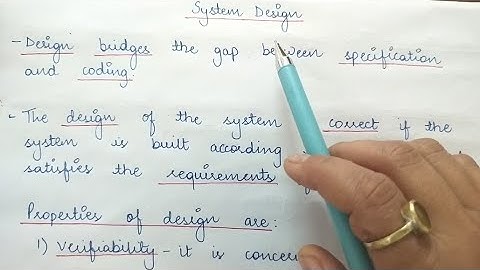 System Design
- Design bridges the gap between specification
and coding.
- The design of the system correct if the
system is built according
satisfies the requirements
Properties of design are:
1) Verifiability - it is